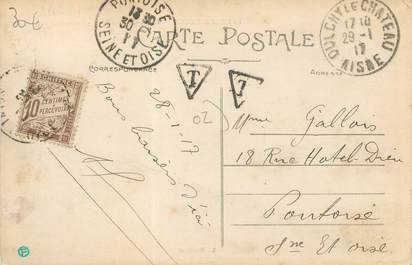 30€
PONTOISE
13 30
30 - 1
17
SEINE ET OISE
CARTE POSTALE
OULCHY LE CHATEAU
17 10
29 - 1
17
AISNE
CORRESPONDANCE
ADRESSE
T
T
10
CENTIMES
A
PERCEVOIR
28-1-17
Bons baisers d'ici
02
Mme Gallois
18 Rue Hotel-Dieu
Pontoise
Sne Et oise